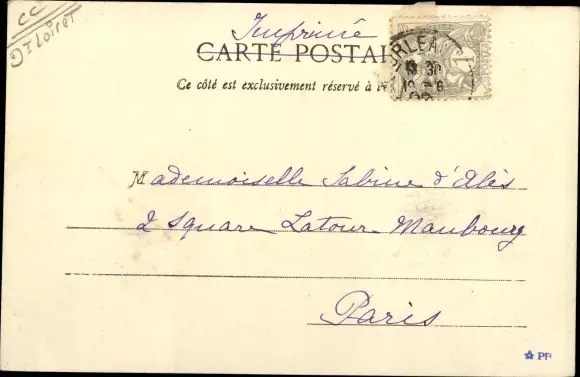 CC
Gt Loiret
Imprimé
CARTE POSTAL
Ce côté est exclusivement réservé à l'
ORLEA
1
Mademoiselle Sabine d'Alès
2 Square Latour Maubourg
Paris
PP